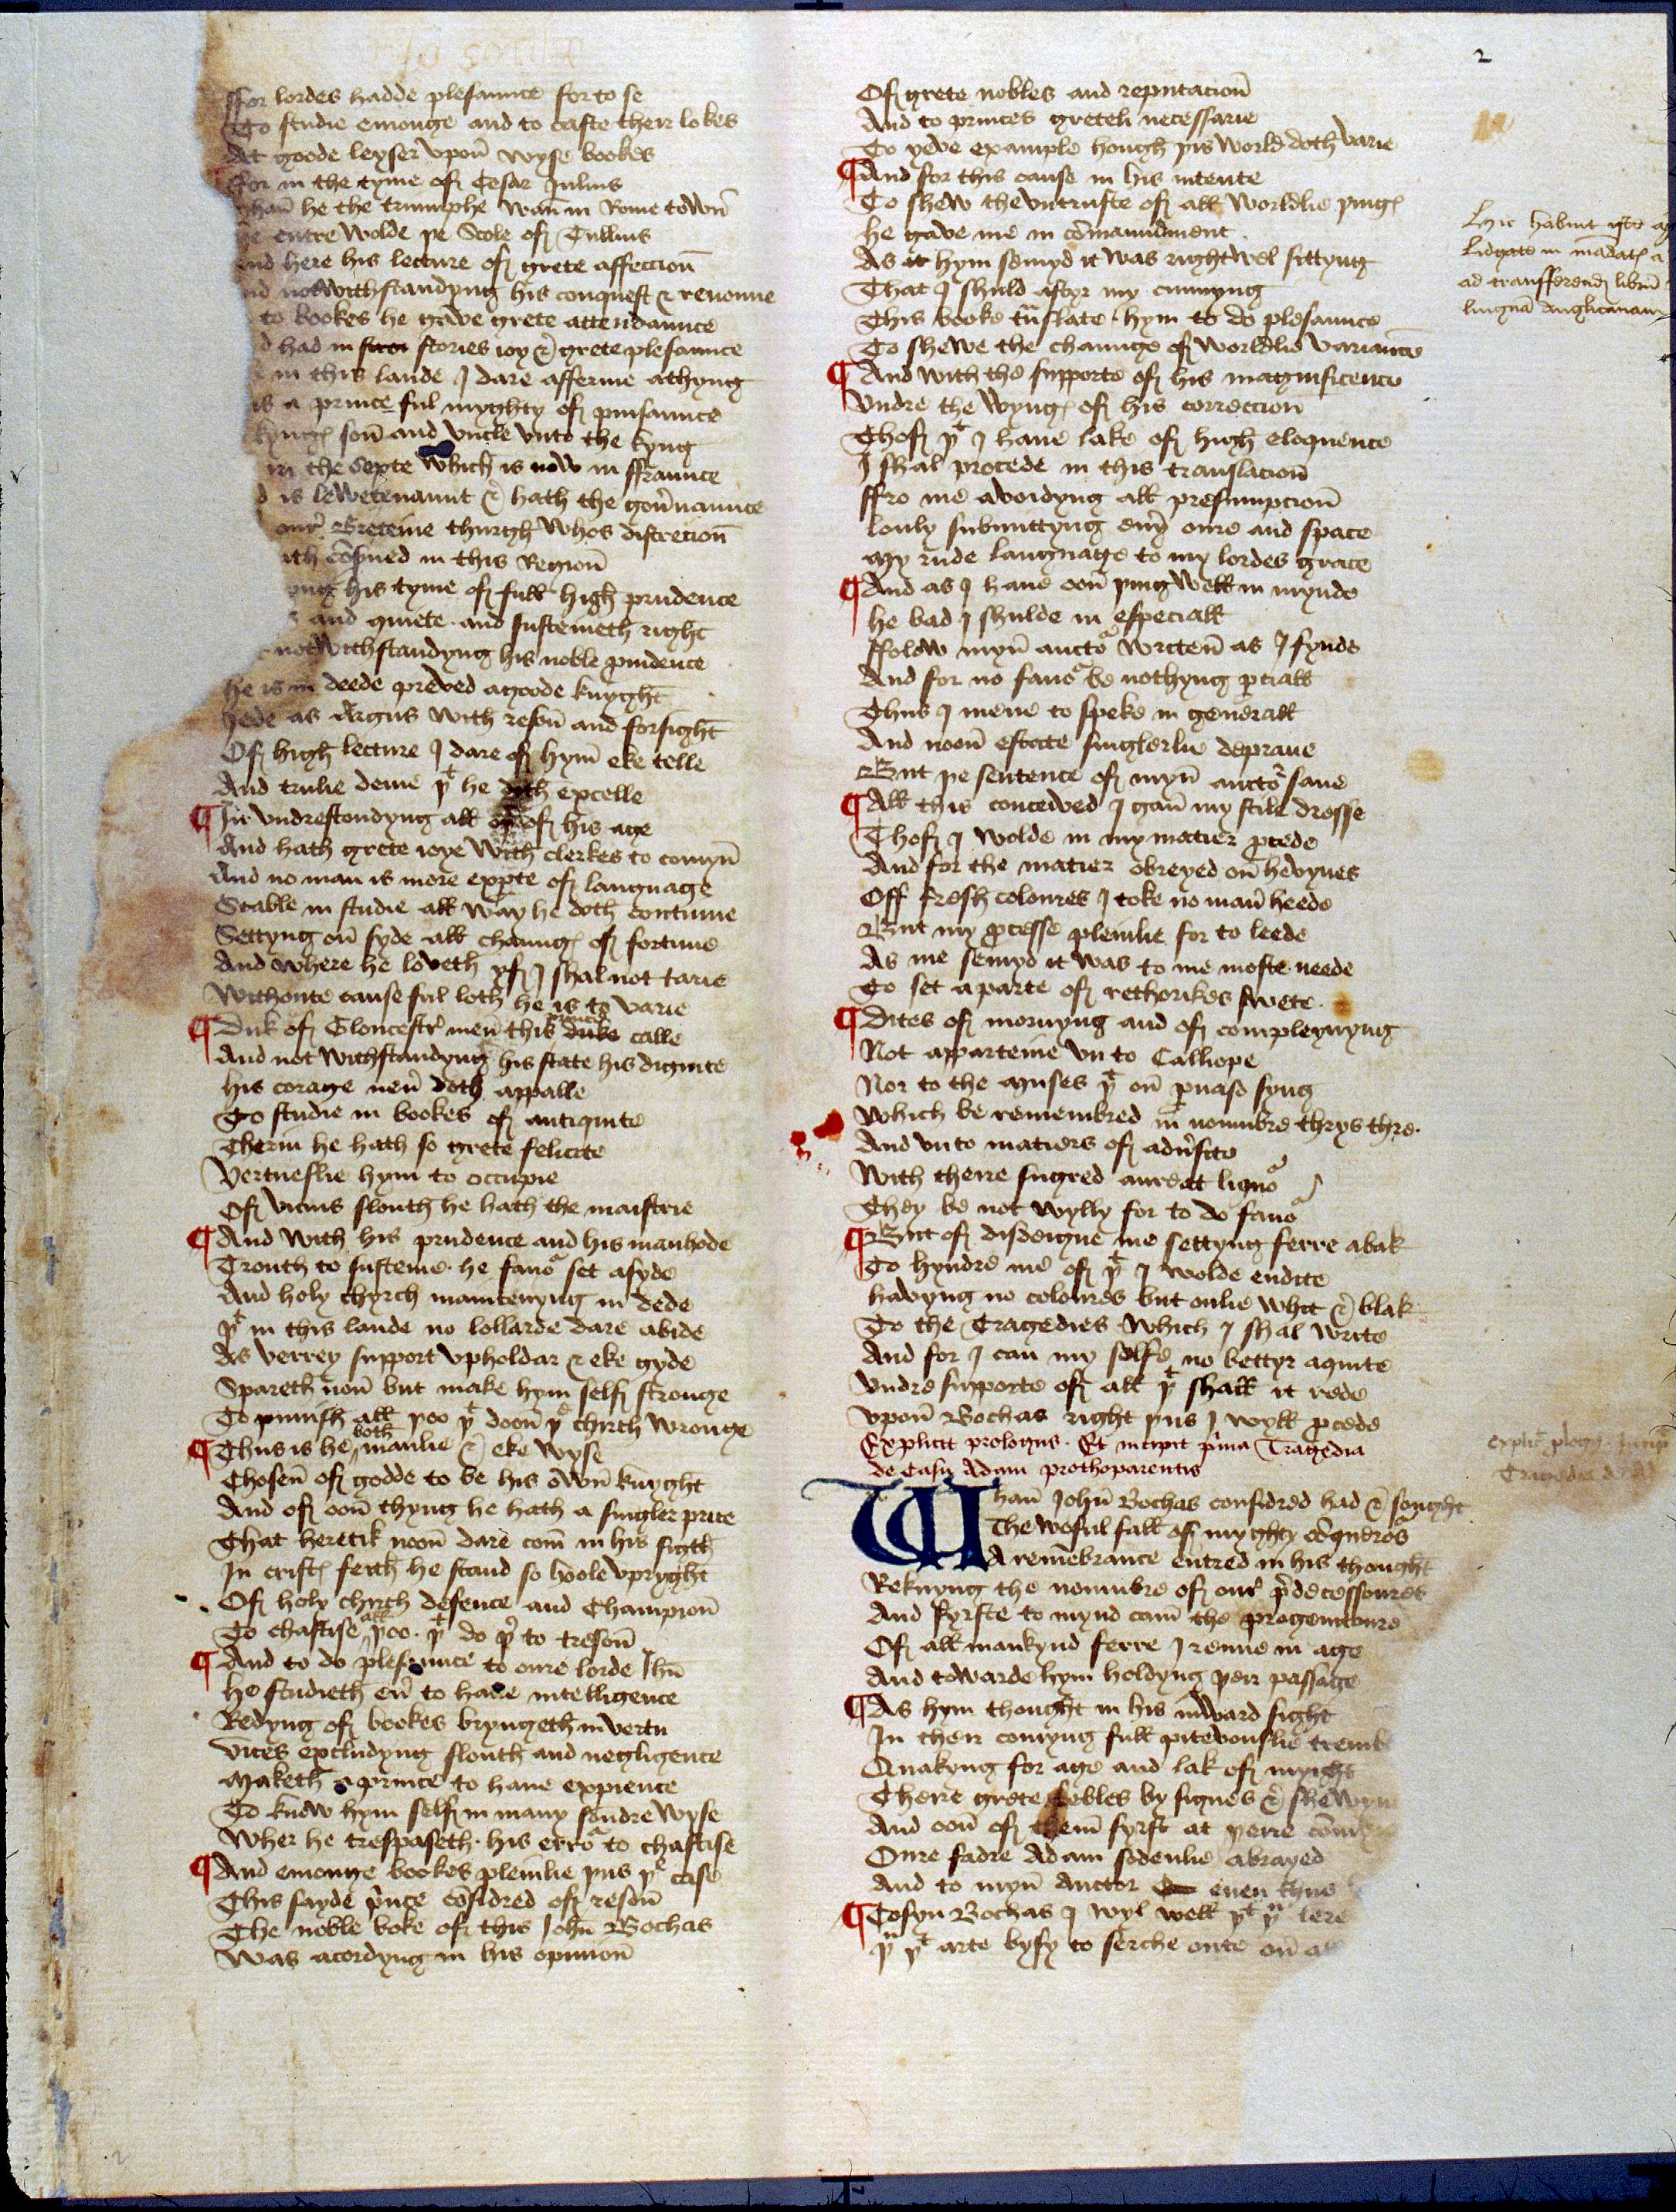 ffor lordes hadde plesaunce for to se
To studie emonge and to caste their lokes
At goode leyser vpon̄ wyse bookes
ffor in the tyme of Cesar Julius
whan̄ he the triumphe wan̄ in Rome town̄
He entre wolde þe Scole of Tullius
And here his lecture of grete affeccion̄
nd notwithstandyng his conquest & renoune
to bookes he gave grete attendaunce
d had in stories ioy & grete plesaunce
in this lande I dare afferme athyng
is a prince ful myghty of puisaunce
kynges son̄ and vncle vnto the kyng
in the Septe which is now in ffraunce
d is lewetenaunt & hath the gou̓naunce
our Breteine thurgh whos discrecion̄
ith cōs̓ued in this Region̄
yng his tyme of full high prudence
and quiete and susteineth right
notwithstandyng his noble p̓udence
he is in deede preved agoode knyght
hede as Argus with reson̄ and forsight
Of high lecture I dare of hym̄ eke telle
And trulie deme þt he doth excelle
¶ In vndrestondyng all of his age
And hath grete ioye with clerkes to comyn̄
And no man is more expꝑte of language
Stable in studie all way he doth continue
Settyng on̄ syde all chaunges of fortune
And where he loveth yf I shal not tarie
Withoute cause ful loth he is to varie
¶ Duk of Gloucestr̓ men̄ this prince duke calle
And not withstandyng his state his dignite
his corage neu̓ doth appalle
To studie in bookes of antiquite
Therin he hath so grete felicite
Vertueslie hym to occupie
Of vicius slouth he hath the maistrie
¶ And with his prudence and his manhode
Trouth to susteine he fauoᵃ set asyde
And holy chyrch mainteinyng in dede
þt in this lande no lollarde dare abide
As verrey support vpholdar & eke gyde
Spareth non̄ but make hym self stronge
To punish all þoo þt doon̄ þe chirch wronge
¶ Thus is he both manlie & eke wyse
Chosen̄ of godde to be his own̄ knyght
And of oon̄ thyng he hath a singler price
That heretik noon̄ dare com̄ in his sight
In cristes feith he stand so hoole vpryght
Of holy chirch defence and Champion̄
To chastise all þoo þt do þ̓to treson̄
¶ And to do plesaunce to oure lorde Ihū
he studieth eu̓ to haue intelligence
Redyng of bookes bryngeth in vertu
Vices excludyng slouth and negligence
Maketh a prince to haue expience
To know hym self in many sondre wyse
Wher he trespaseth his erroᵃ to chastise
¶ And emonge bookes pleinlie þus þe case
This sayde p̓nce cōsidred of reson̄
The noble boke of this John̄ Bochas
Was acordyng in his opinion̄
2
Of grete nobles and reputacion̄
And to princes greteli necessarie
To yeve example hough þis world doth varie
¶ And for this cause in his intente
To shew the vntruste of all worldlie þinges
he gave me in cōmaundment
As it hym semyd it was right wel sittyng
That I shuld aftyr my cunnyng
This booke tn̄slate hym to do plesaunce
To shewe the chaunge of worldlie variaunce
¶ And with the supporte of his magnificence
Vndre the wynges of his correccion̄
Thof þt I haue lake of high eloquence
I shal procede in this translacion̄
ffro me avoidyng all presumpcion̄
louly submittyng eu̓y oure and space
My rude language to my lordes grace
¶ And as I haue oon̄ þing well in mynde
he bad I shulde in especiall
ffolow myn̄ auctoᵃ writen̄ as I fynde
And for no fauoᵃ be nothyng ꝑciall
Thus I mene to speke in generall
And noon̄ estate singlerlie depraue
But þe sentence of myn̄ auctoᵃ saue
¶ All this conceived I gan̄ my stile dresse
Thof I wolde in my matier ꝓcede
And for the matier abreyed on̄ hevynes
Off fresh coloures I toke no man̄ heede
But my ꝓcesse pleinlie for to leede
As me semyd it was to me moste neede
To set aparte of rethorikes swete
¶ Dites of mornyng and of compleynyng
Not apparteine vn to Calliope
Nor to the Muses þt on̄ ꝑnaso syng
Which be remembred in noumbre thrys thre
And vnto matiers of adu̓site
With theire sugred aureat liquoᵃ
They be not wylly for to do fauoᵃ
¶ But of disdeigne me settyng ferre abak
To hyndre me of þt I wolde endite
havyng no coloures but onlie whit & blak
To the Tragedies which I shal write
And for I can my selfe no bettyr aquite
Vndre supporte of all þt shall it rede
Vpon̄ Bochas right þus I wyll ꝓcede
Explicit prologus. Et incipit p̓ma Tragedia
de Casu Adam prothoparentis
Whan̄ John̄ Bochas considred had & sought
The woful fall of myghty cōqueroᵃs
A remēbrance entred in his thought
Reknyng the noumbre of our p̓decessoures
And fyrste to mynd cam̄ the progenitoure
Of all mankynd ferre I renne in age
And towarde hym holdyng þeir passage
¶ As hym thought in his inward sight
In their comyng full pitevouslie tremb
Quakyng for age and lak of myght
Theire grete febles by signes & shewyn
And oon̄ of them̄ fyrst at þeire comy
Oure fadre Adam sodenlie abrayed
And to myn̄ Auctor even thus
¶ Cosyn Bochas I wyl well þt þu lere
þu þt arte bysy to serche oute on̄ a
Hic habuit iste
Lidgate in mādatis a
ad transferend̄ librū
linguā Anglicanam
Explic̄ plog̓ Incip
Tragedia d